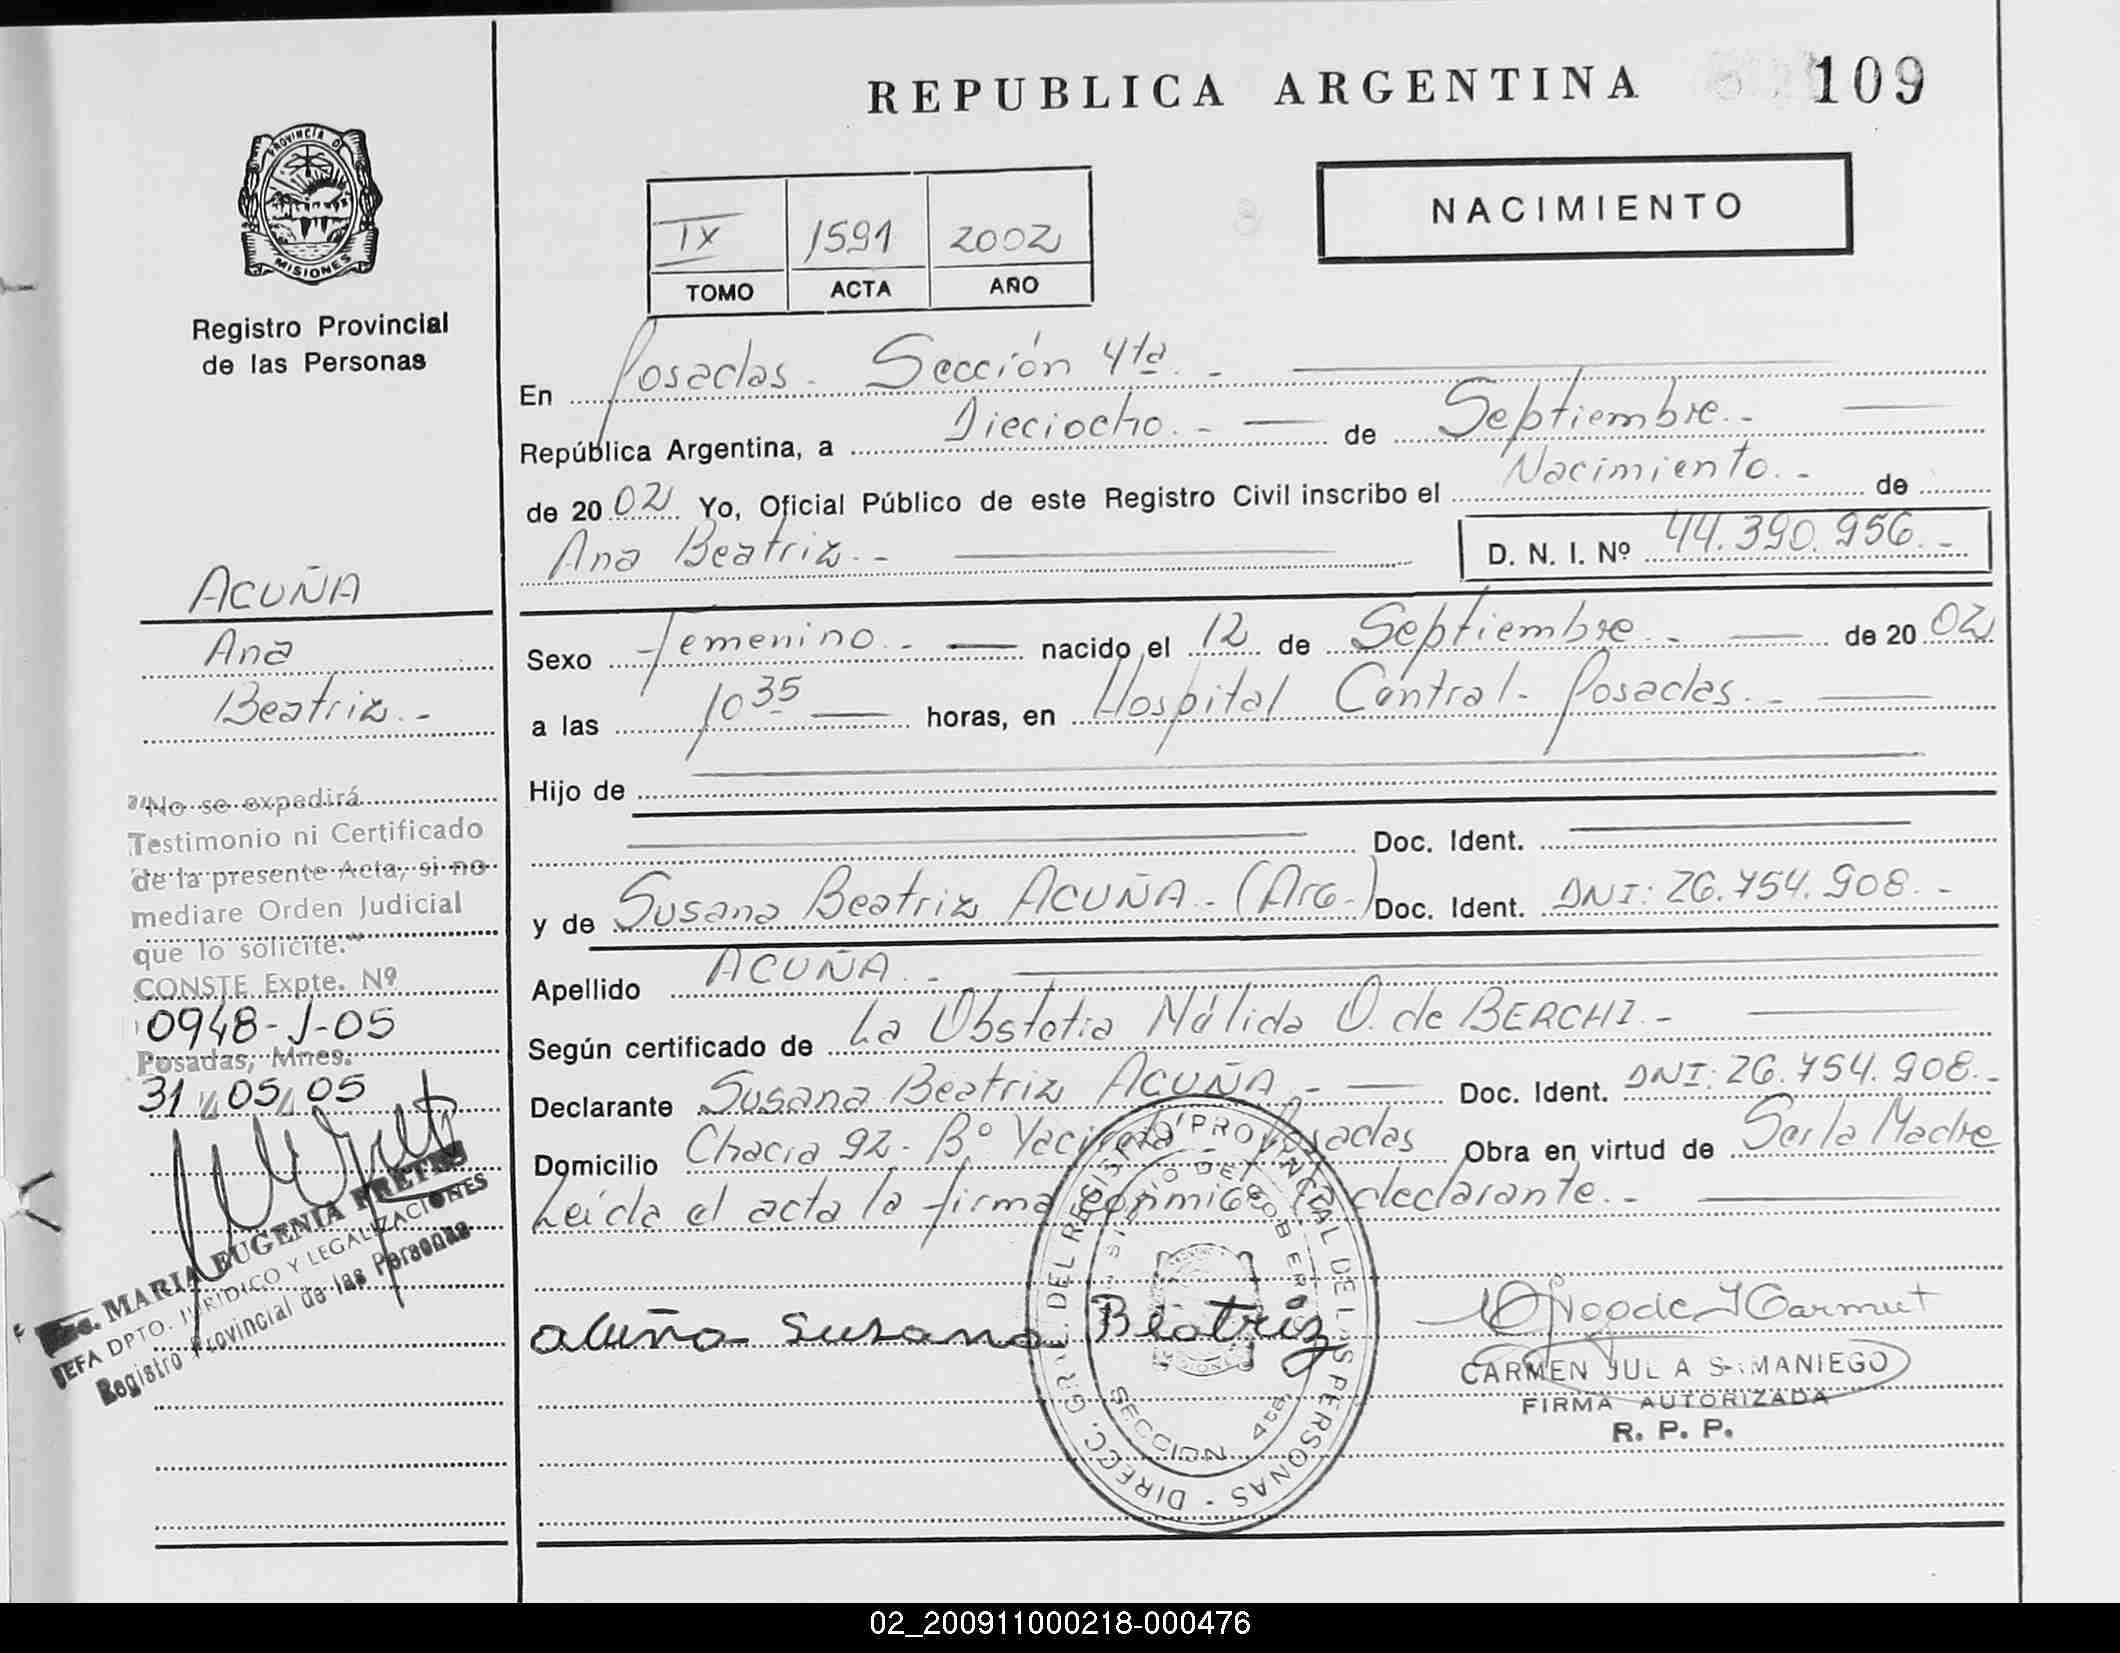 REPUBLICA ARGENTINA 109
PROVINCIA DE MISIONES
Registro Provincial
de las Personas
NACIMIENTO
IX 1591 2002
TOMO ACTA AÑO
En Posadas. Sección 4ta. -
República Argentina, a Dieciocho. - de Septiembre. -
de 2002 Yo, Oficial Público de este Registro Civil inscribo el Nacimiento. - de
Ana Beatriz. - D. N. I. Nº 44.390.956. -
Sexo Femenino. - nacido el 12 de Septiembre. - de 2002
a las 10 35 horas, en Hospital Central - Posadas. -
Hijo de
Doc. Ident.
y de Susana Beatriz ACUÑA - (Arg.) Doc. Ident. DNI: 26.754.908. -
Apellido ACUÑA. -
Según certificado de La Obstetra Nélida O. de BERCHI. -
Declarante Susana Beatriz ACUÑA. - Doc. Ident. DNI: 26.754.908. -
Domicilio Chacra 92 - Bº Yacyretá Posadas Obra en virtud de Ser la Madre
Leída el acta la firma conmigo la declarante. -
acuña susana Beatriz
CARMEN JUL A S MANIEGO
FIRMA AUTORIZADA
R. P. P.
DIRECC. GRAL. DEL REGISTRO PROVINCIAL DE LAS PERSONAS
SECCION 4ta
ACUÑA
Ana
Beatriz. -
"No se expedirá
Testimonio ni Certificado
de la presente Acta, si no
mediare Orden Judicial
que lo solicite."
CONSTE Expte. Nº
0948-J-05
Posadas, Mnes.
31 / 05 / 05
MARIA EUGENIA FRETES
JEFA DPTO. JURIDICO Y LEGALIZACIONES
Registro Provincial de las Personas
02_200911000218-000476